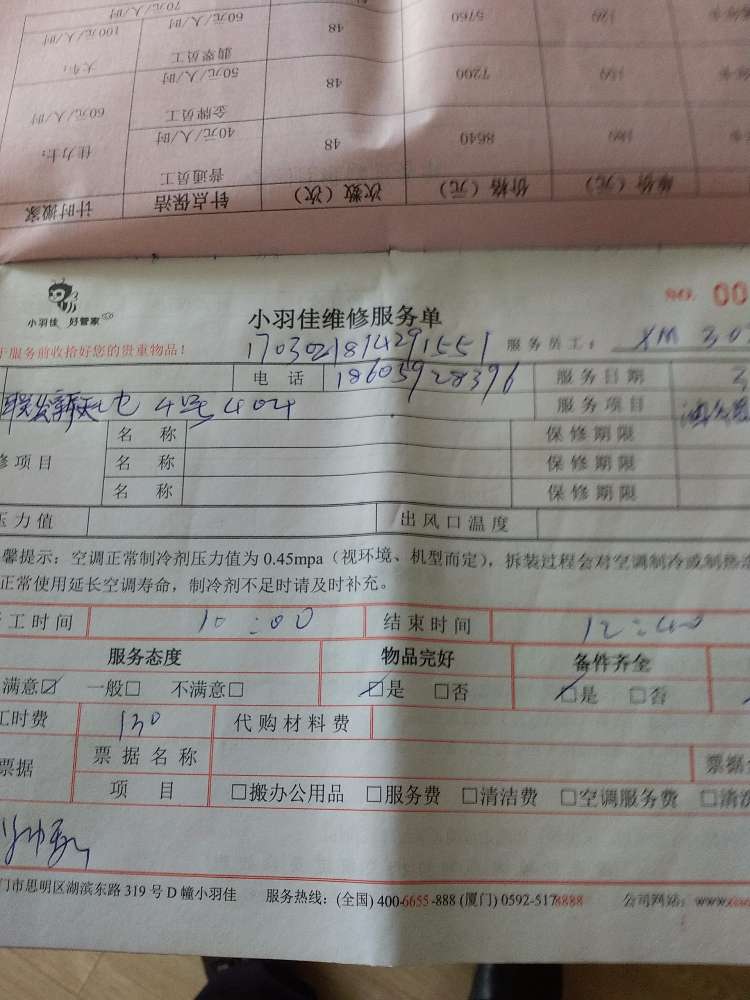 70元/人/时
60元/人/时 5760
100元/人/时 翡翠员工 48
大牛:
50元/人/时 48 7200
60元/人/时 金牌员工
佳力士: 40元/人/时 48 8640
普通员工
计时搬家 针点保洁 次数（次） 价格（元） 单价（元）
小羽佳 好管家
小羽佳维修服务单
NO. 00
于服务前收拾好您的贵重物品！
1703021814291551
服务员工: XM 30
电话 18605928396 服务日期 3
联发新天地 4号404 服务项目
名称 保修期限
修项目 名称 保修期限
名称 保修期限
压力值 出风口温度
馨提示：空调正常制冷剂压力值为 0.45mpa（视环境、机型而定），拆装过程会对空调制冷或制热
正常使用延长空调寿命，制冷剂不足时请及时补充。
工时间 10:00 结束时间 12:40
服务态度 物品完好 备件齐全
满意☑ 一般□ 不满意□ ☑是 □否 ☑是 □否
工时费 130 代购材料费
票据 票据名称 票据
项目 □搬办公用品 □服务费 □清洁费 □空调服务费 □清洗
门市思明区湖滨东路 319 号 D 幢小羽佳 服务热线：(全国) 400-6655-888 (厦门) 0592-5178888 公司网站：www.